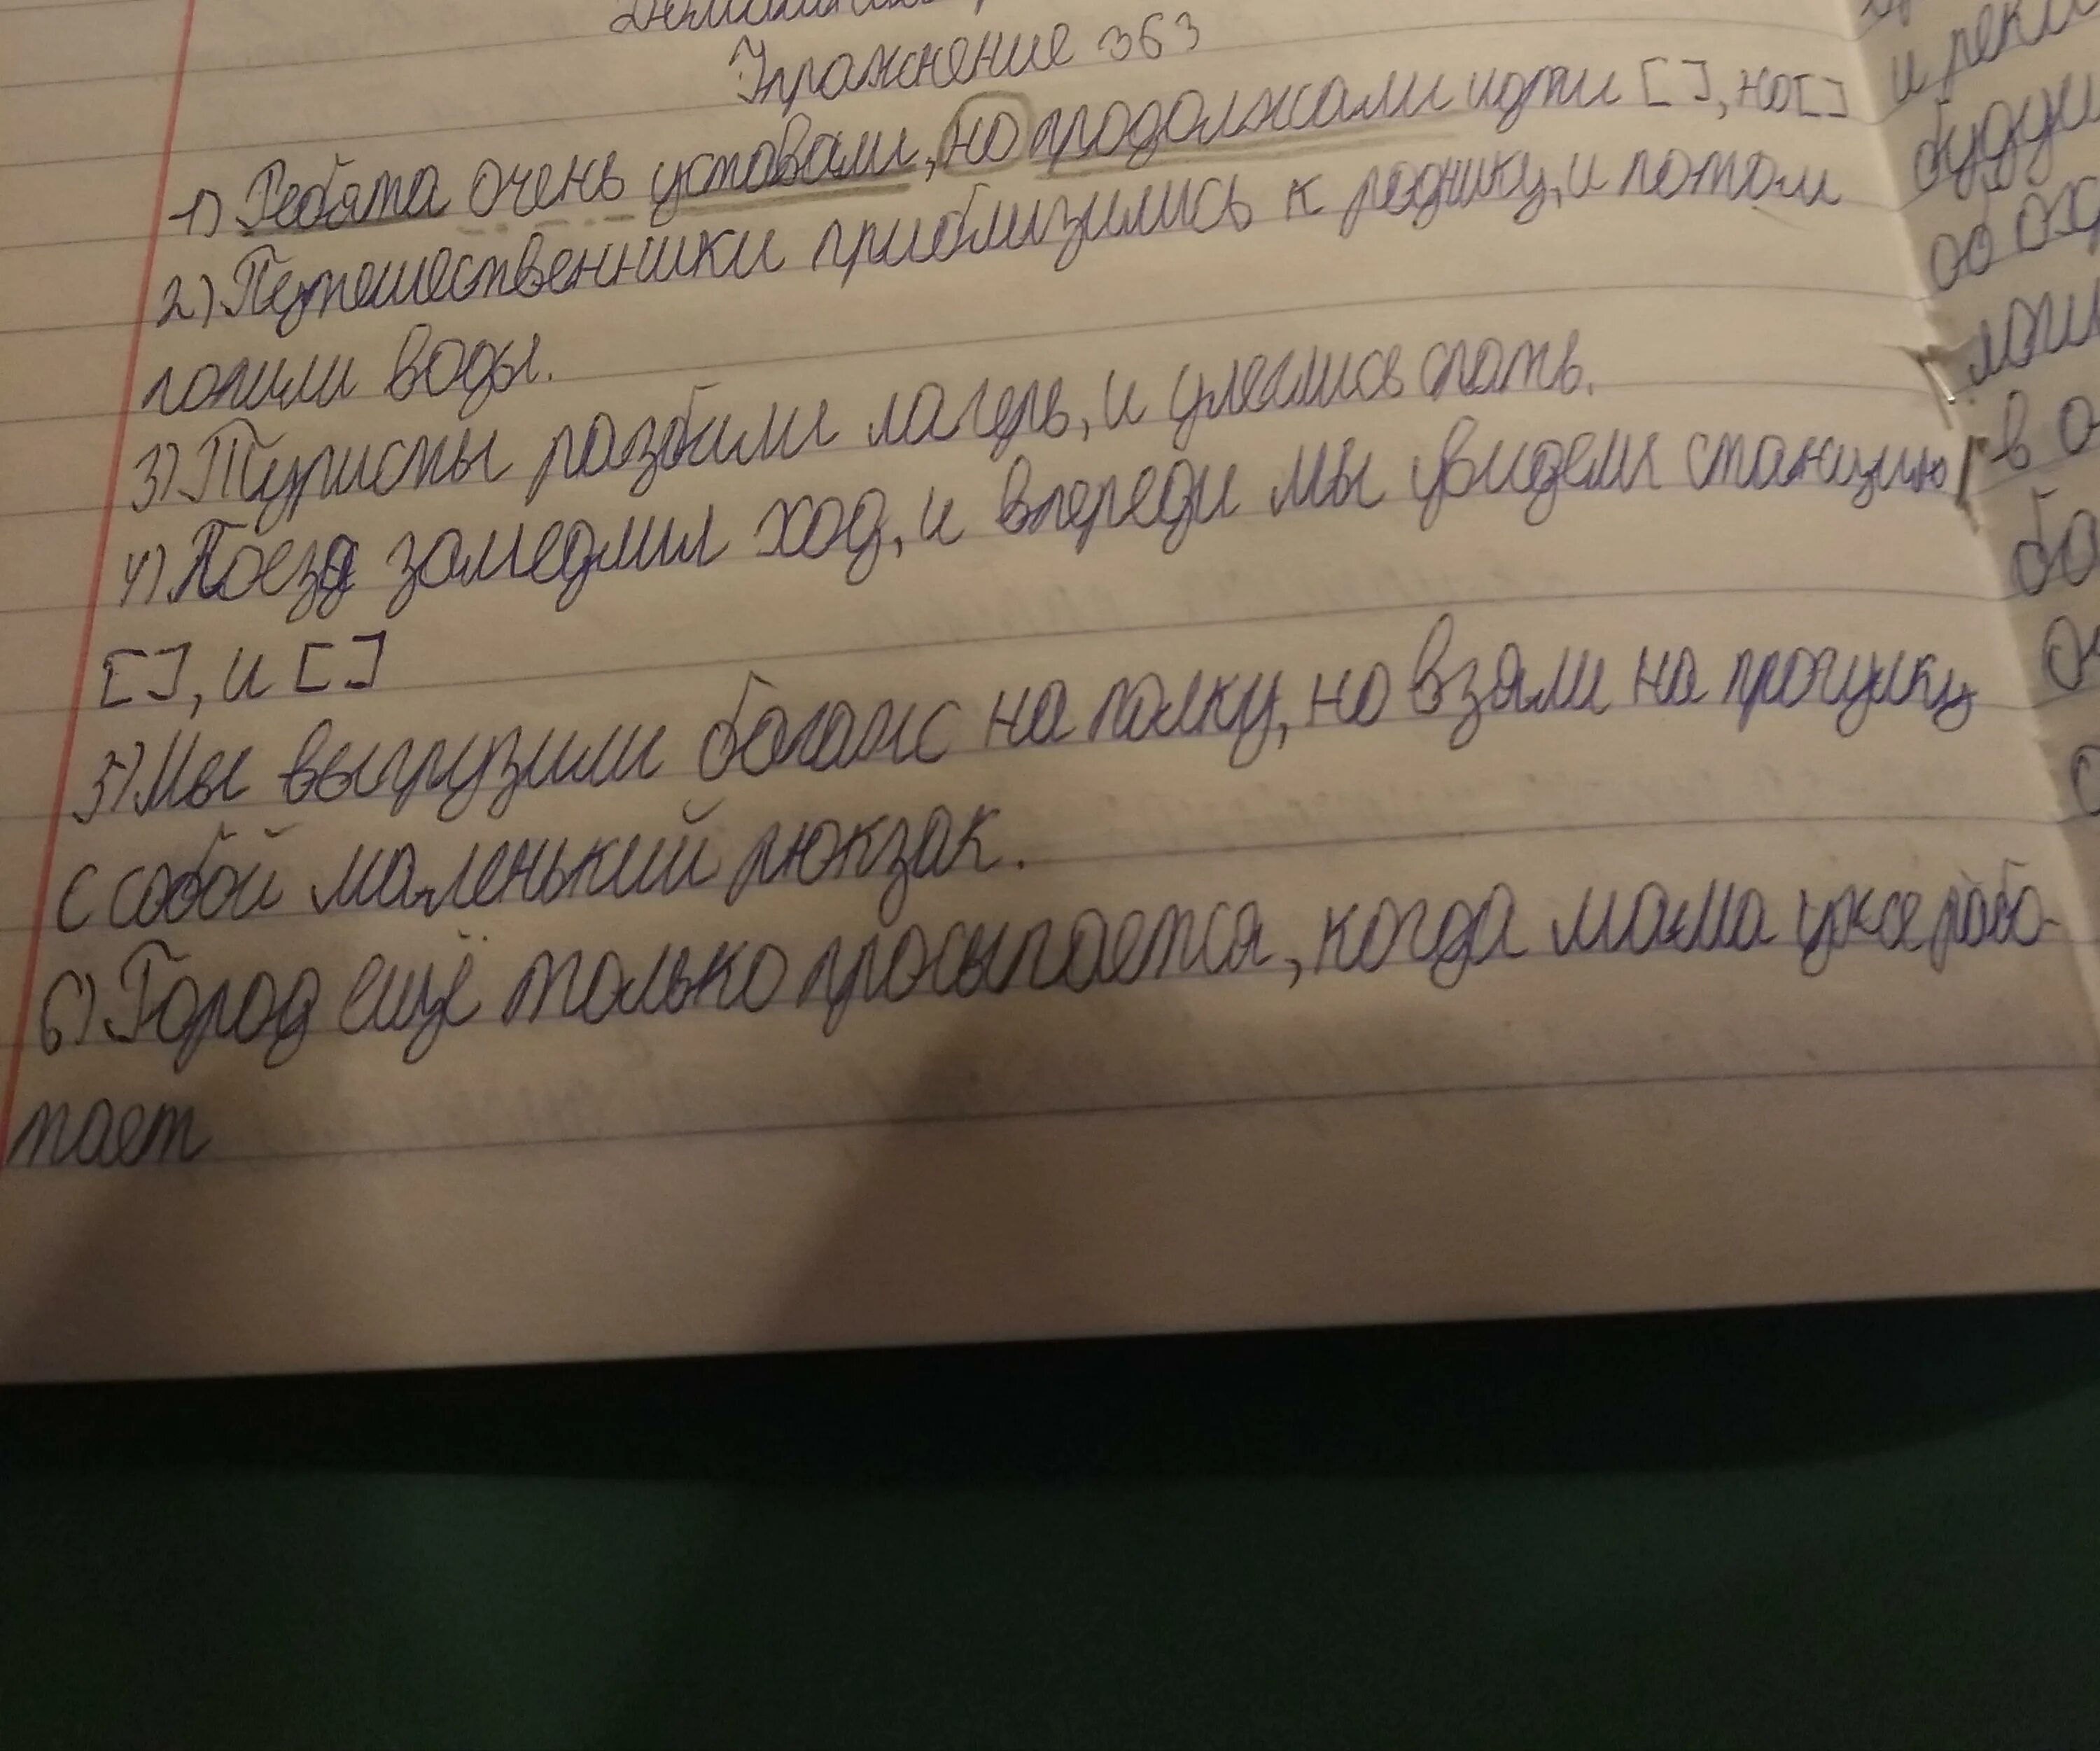 Упражнение 363
1) Ребята очень уставали, но продолжали идти [ ], но [ ]
2) Путешественники приблизились к роднику, и потом
попили воды.
3) Туристы разбили лагерь, и улеглись спать.
4) Поезд замедлил ход, и впереди мы увидели станцию
[ ], и [ ]
5) Мы выгрузили багаж на полку, но взяли на прогулку
с собой маленький рюкзак.
6) Город ещё только просыпается, когда мама уже рабо-
тает
и
в